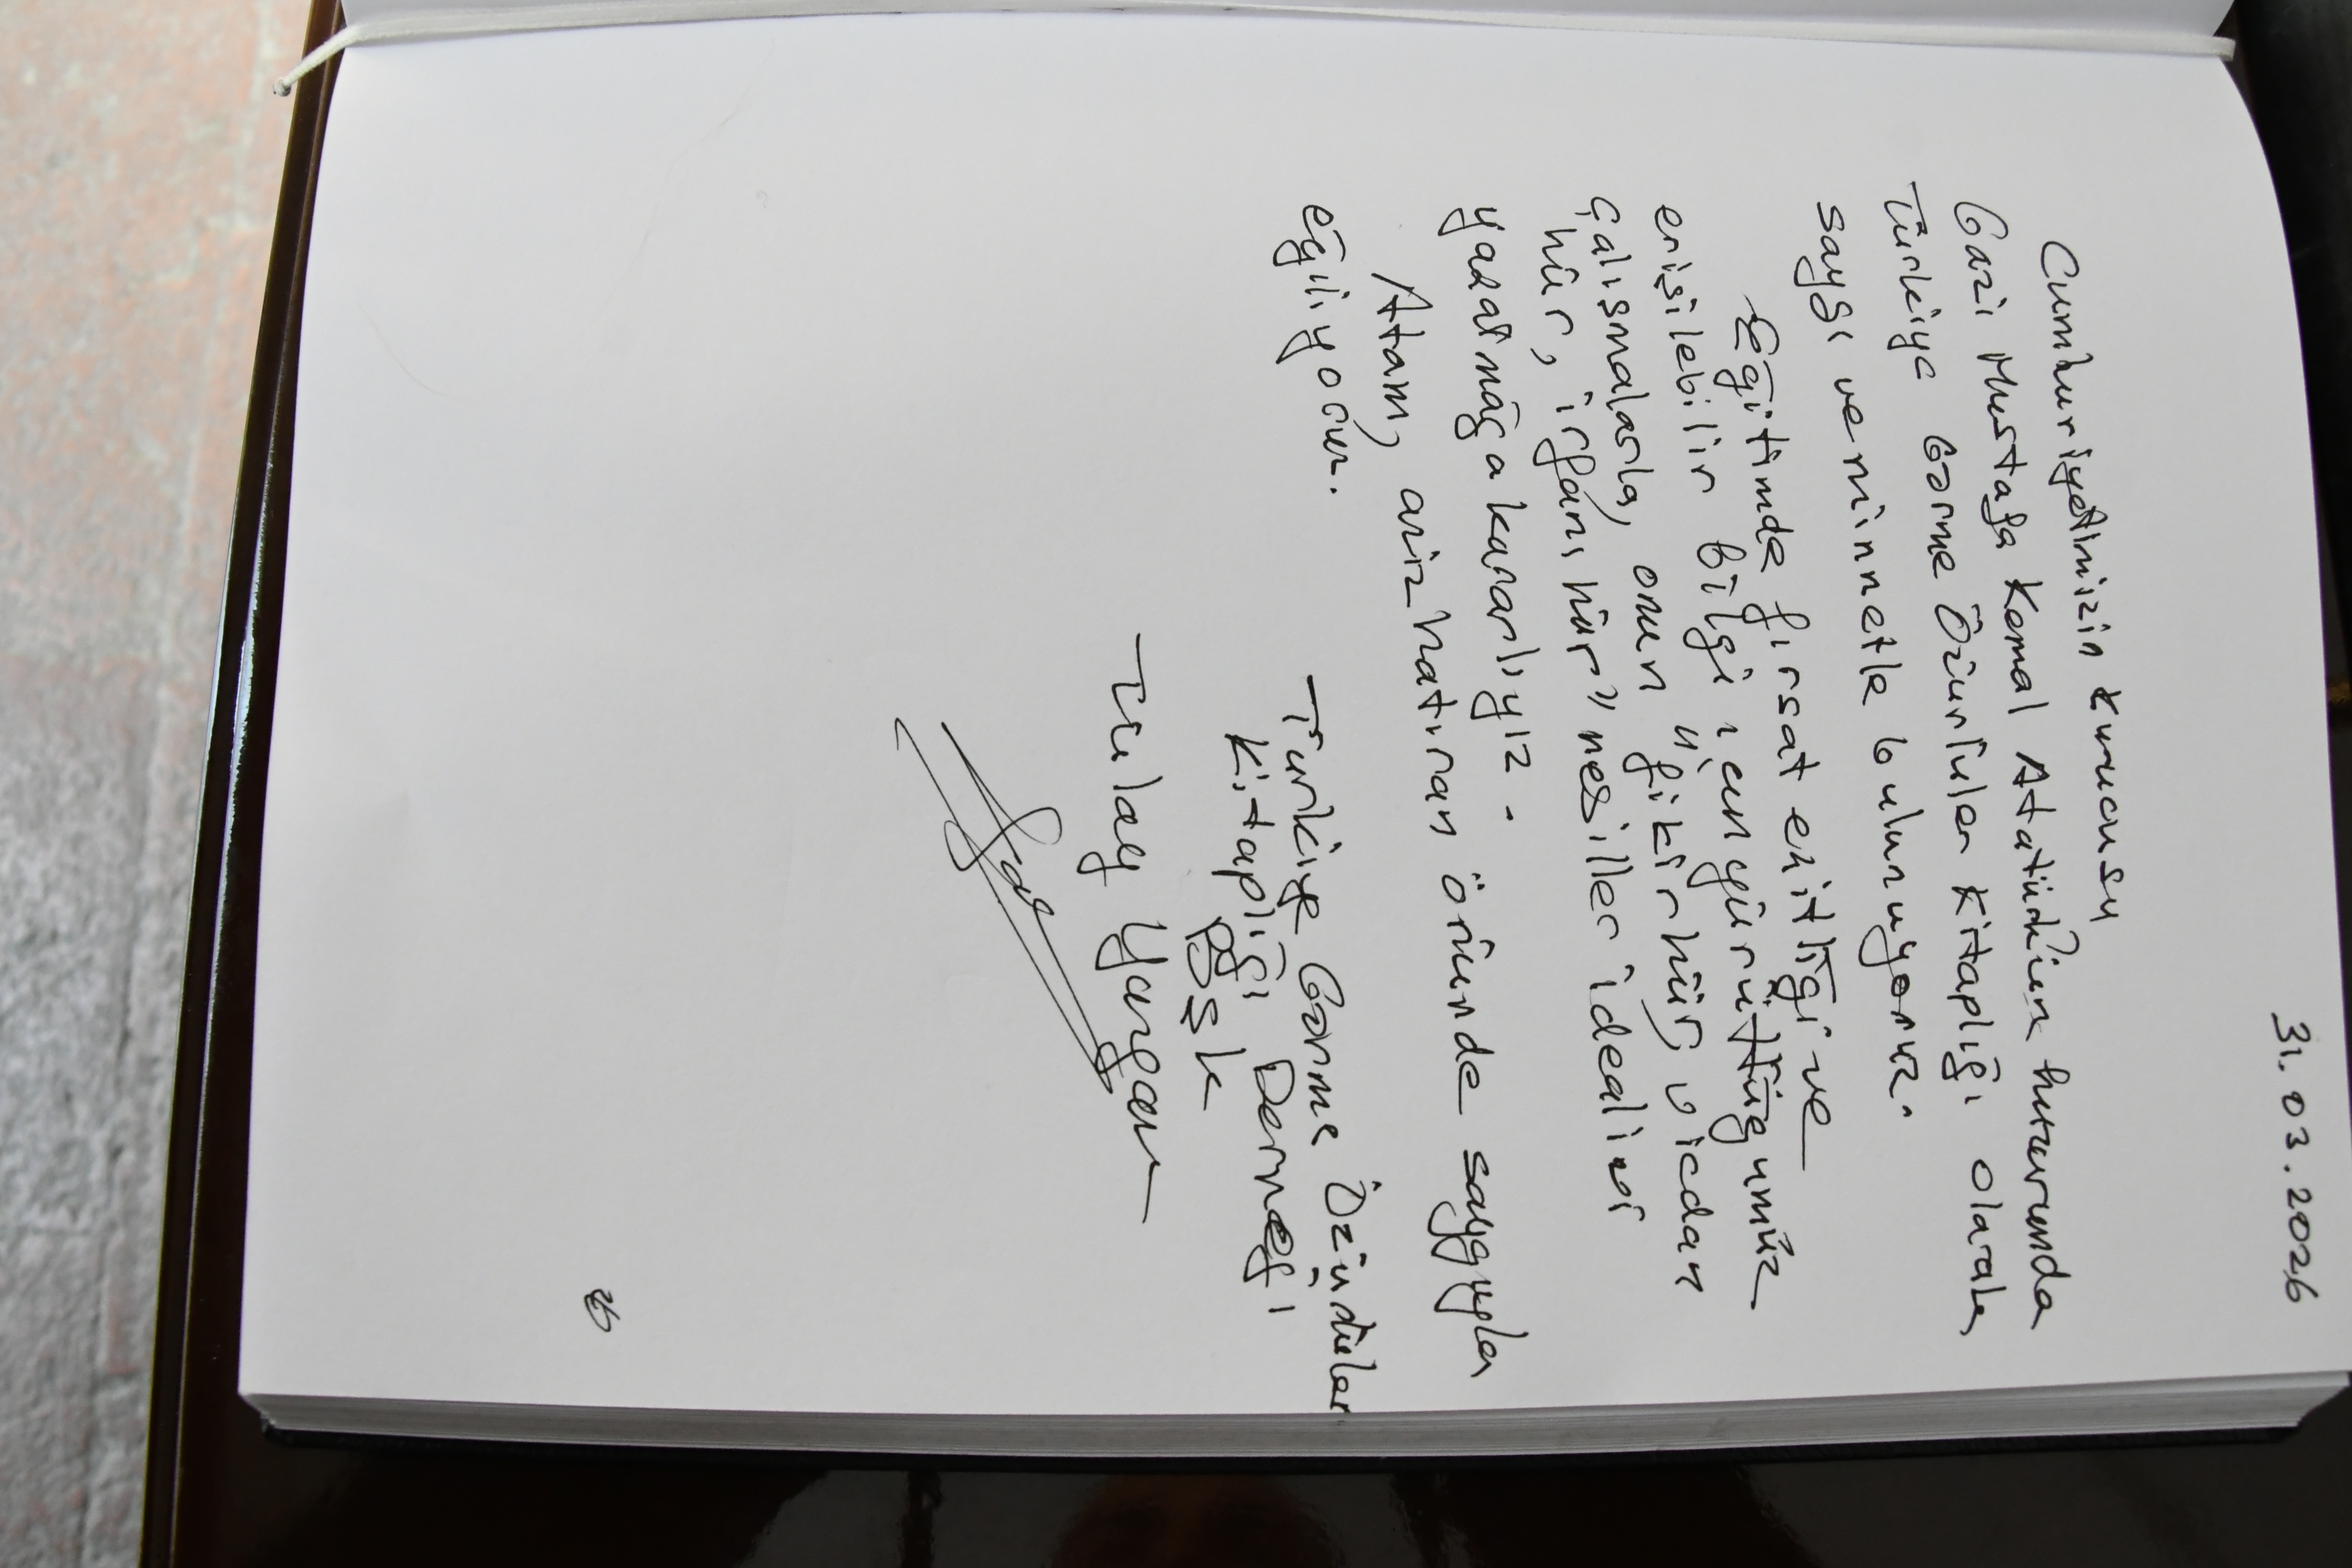 31.03.2026
Cumhuriyetimizin kurucusu
Gazi Mustafa Kemal Atatürk'ün huzurunda
Türkiye Görme Özürlüler Kitaplığı olarak
saygı ve minnetle bulunuyoruz.
Eğitimde fırsat eşitliği ve
erişilebilir bilgi için yürüttüğümüz
çalışmalarla, onun "fikri hür, vicdanı
hür, irfanı hür" nesiller idealini
yaşatmağa kararlıyız.
Atam, aziz hatıran önünde saygıyla
eğiliyoruz.
Türkiye Görme Özürlüler
Kitaplığı Derneği
BŞK
Tülay Yazgan
26